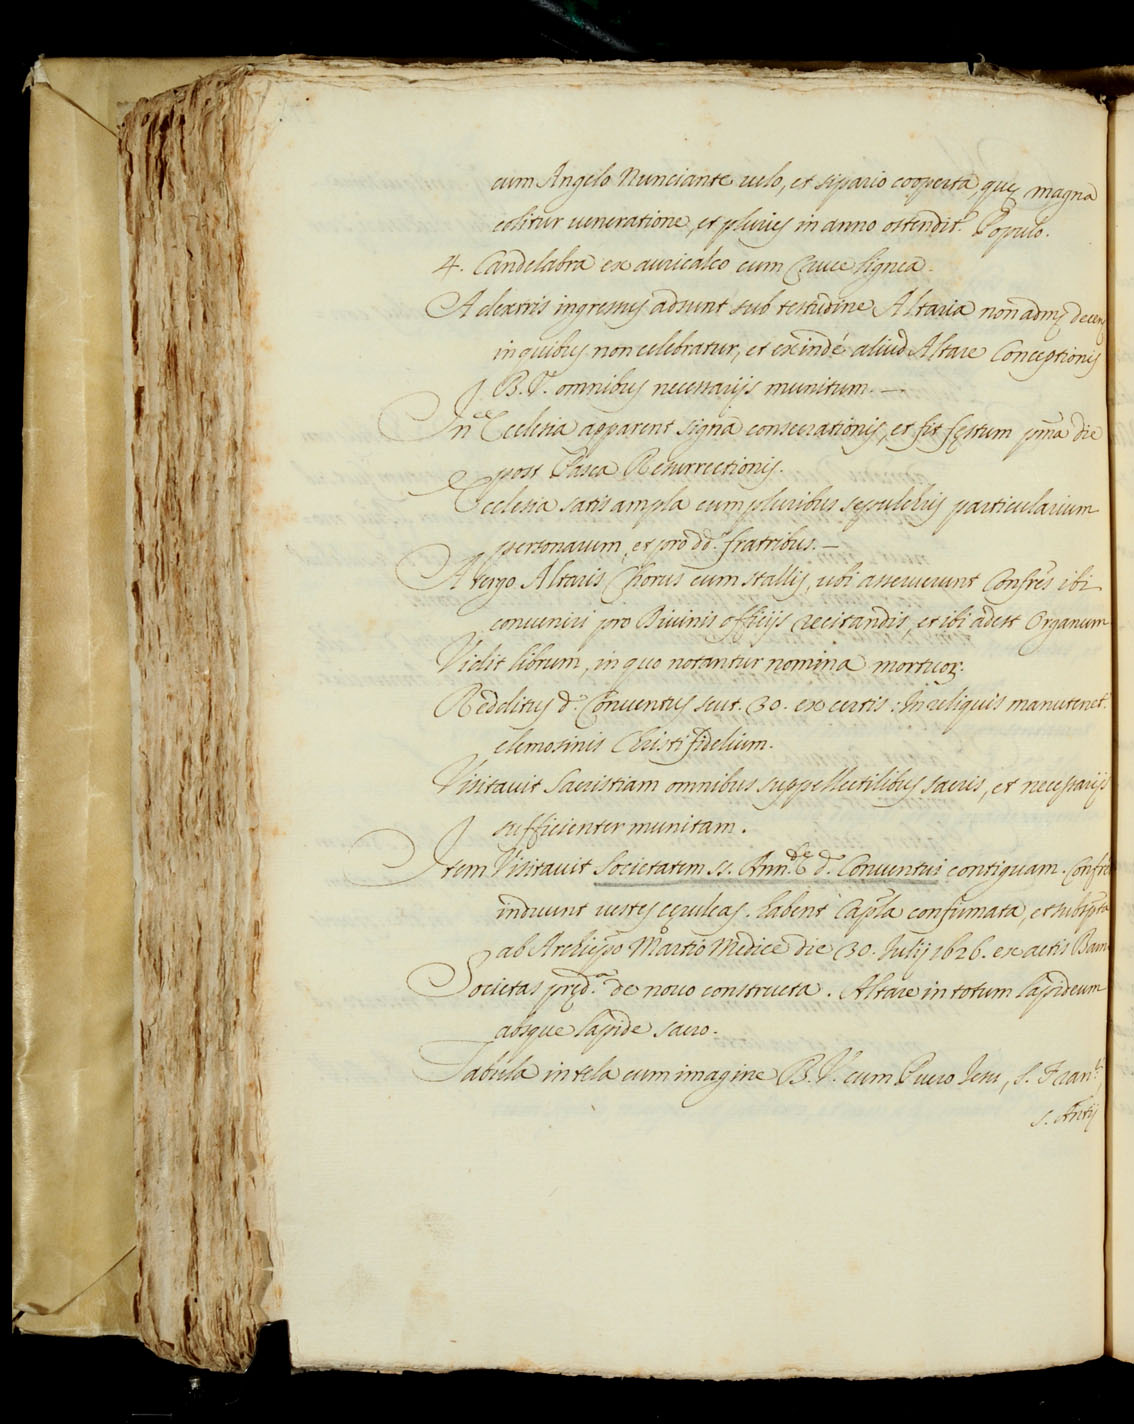 cum Angelo Nunciante uelo, et sipario cooperta, quę magna
colitur ueneratione, et pluries in anno ostendit.r Populo.
4. Candelabra ex auricalco cum Cruce lignea.
A dextris ingressus adsunt sub testudine Altaria non admo
in quibus non celebratur, et exinde aliud Altare Conceptionis
B. V. omnibus necessarijs munitum. —
In Ecclesia apparent signa consecrationis, et fit festum pma die
post Pasca Resurrectionis.
Ecclesia satis ampla cum pluribus sepulchris particularium
personarum, et pro dd. fratribus. —
A tergo Altaris Chorus cum stallis, ubi asseruerunt Confres ibi
conueniri pro Diuinis officijs recitandis, et ibi adest Organum
Vidit librum, in quo notantur nomina mortuoꝝ.
Redditus d.i Conuentus scut. 30. ex certis: In reliquis manutenet.r
elemosinis Christi fidelium.
Visitauit Sacristiam omnibus suppellectilibus sacris, et necessarijs
sufficienter munitam.
Item Visitauit Societatem SS. Ann.de d.o Conuentui contiguam. Confre
induunt uestes ceruleas. habent Capla confirmata, et subscpta
ab Archiepo Martio Medice die 30. Julij 1626. ex actis Bam
Societas pręd.a de nouo constructa. Altare in totum lapideum
absque lapide sacro.
Tabula in tela cum imagine B. V. cum Puero Jesu, S. Fran.ci
S. Antij